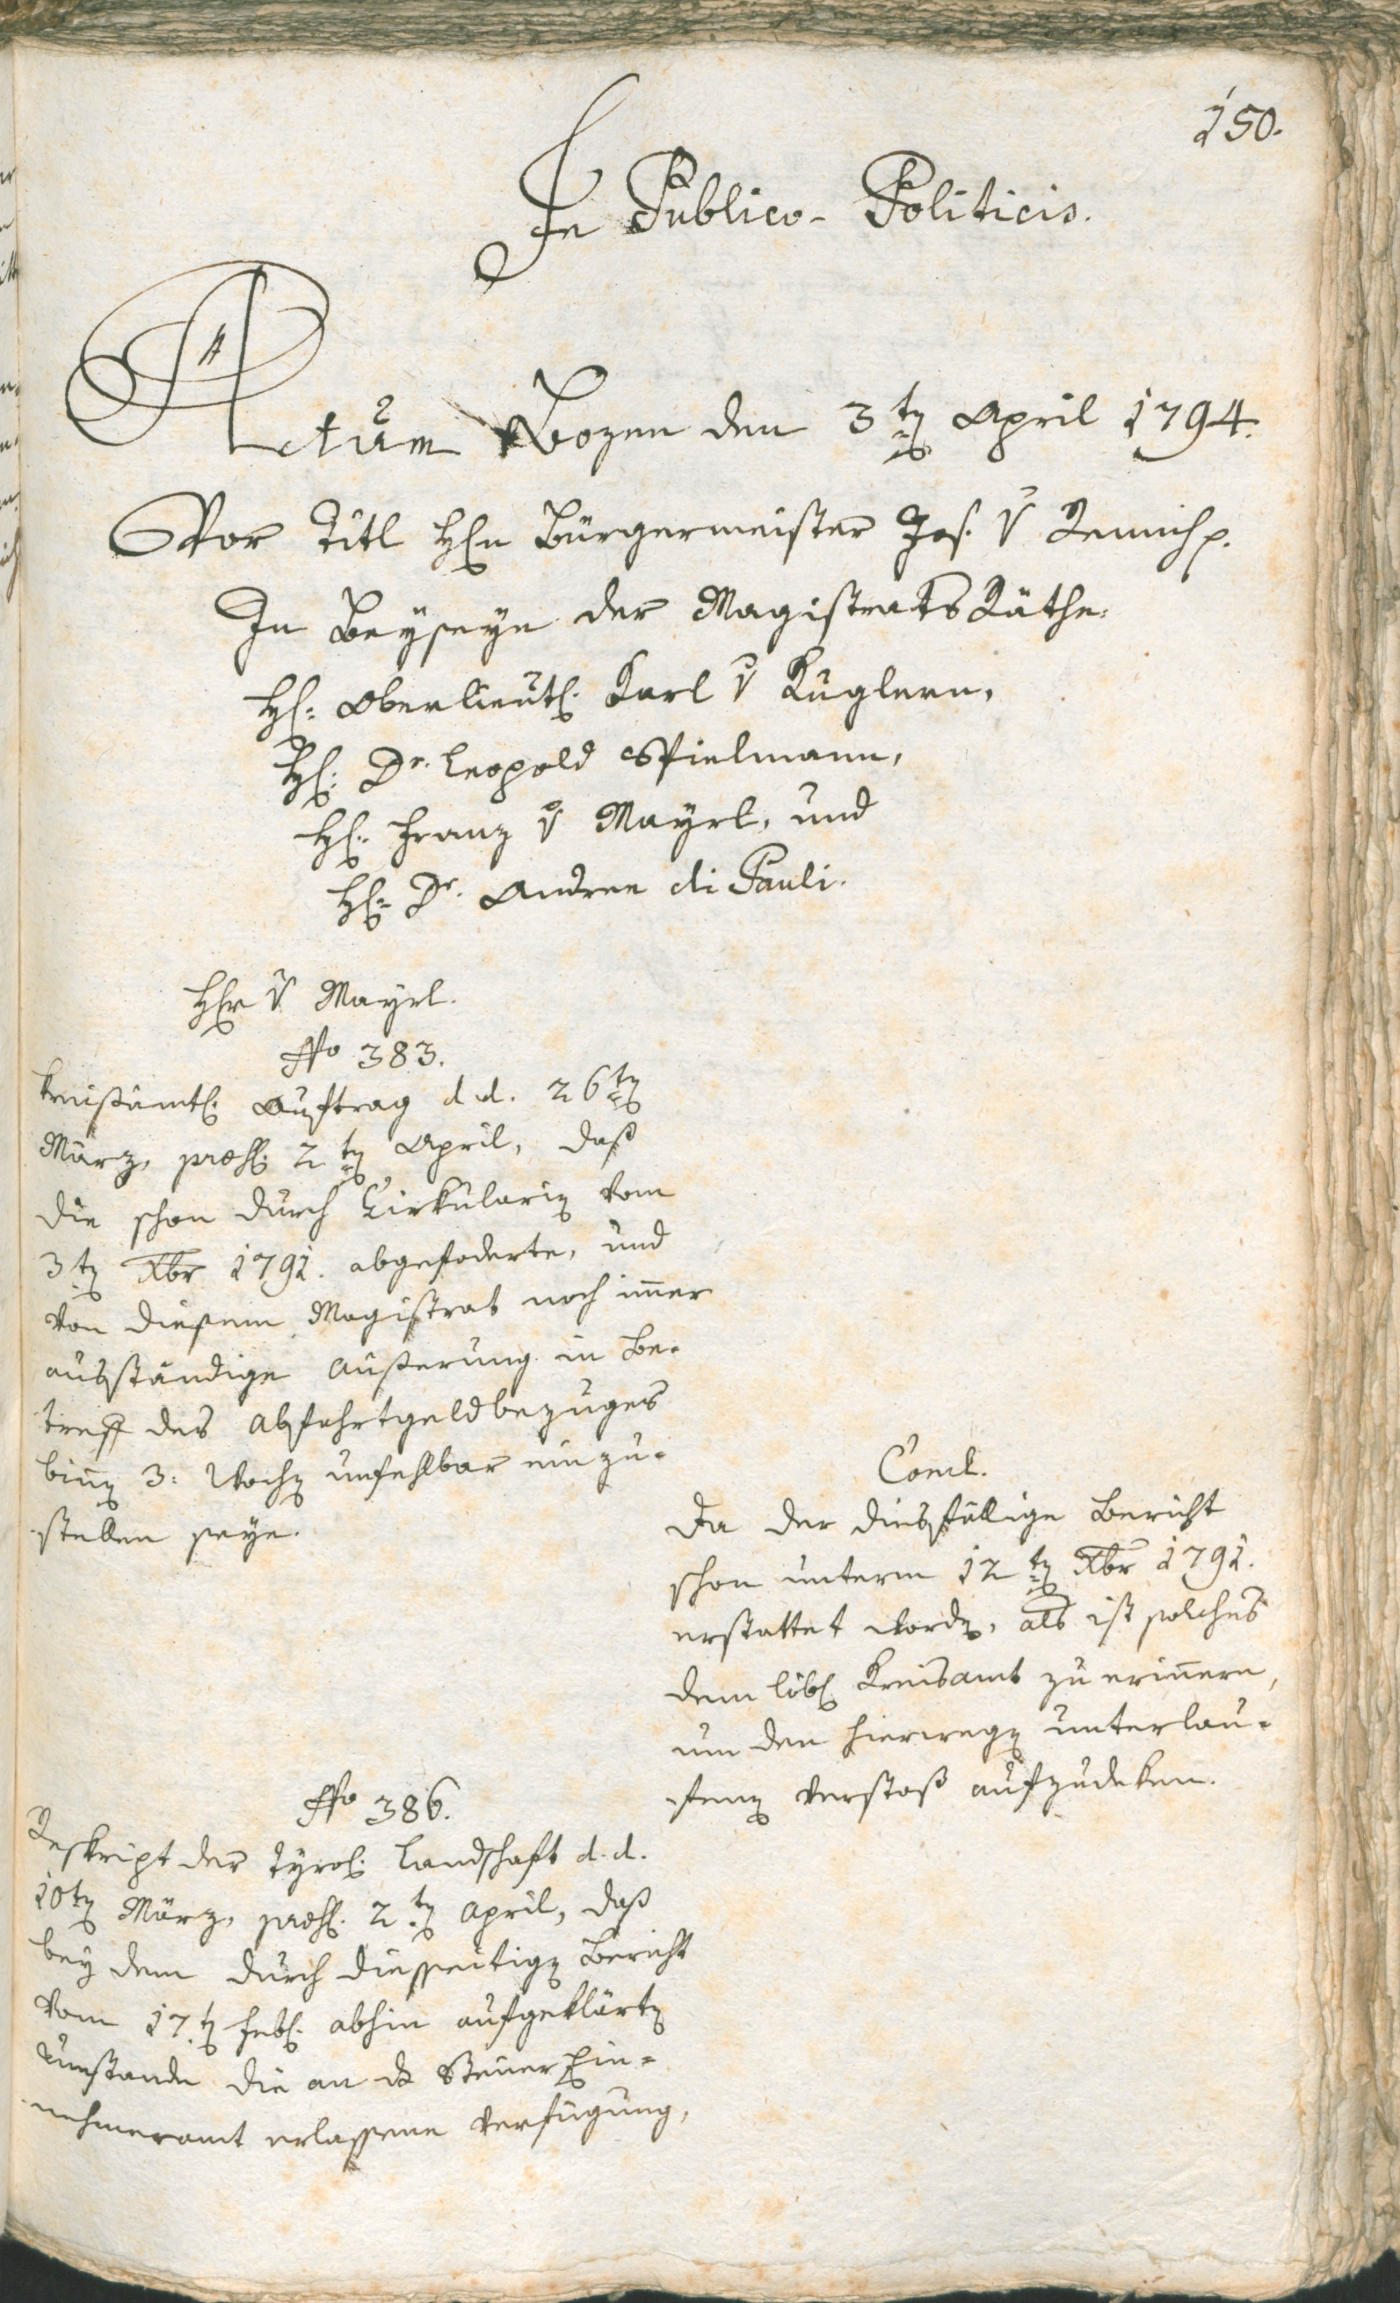 150.
In Publico-Politicis.
Actum Bozen den 3ten April 1794.
Vor Titl Hrn Bürgermeister Jos. v Remich p.
In Beyseyn der Magistrats Räthe:
Hl: Oberlieutl. Karl v Kuglern,
Hl: Dr. Leopold Spielmann,
Hl: Franz v Mayrl, und
Hl: Dr. Andree di Pauli.
Hr v Mayrl.
No 383.
Kreisämtl. Auftrag d. d. 26ten
März, praes. 2ten April, daß
die schon durch Cirkularien vom
3ten Xbr 1791. abgefoderte, und
von diesem Magistrat noch imer
ausständige Äußerung in Be-
treff des Abfahrtgeldbezuges
binen 3: Wochen unfehlbar einzu-
stellen seye.
Concl.
Da der diesfällige Bericht
schon unterm 12ten Xbr 1791.
erstattet worden, als ist solches
dem löbl Kreisamt zu erinern,
um den hierwegen unterlau-
fenen Verstoß aufzudeken.
No 386.
Reskript der Tyrol. Landschaft d. d.
10ten März, praes. 2ten April, daß
bey dem durch diesseitigen Bericht
vom 17ten Febl. abhin aufgeklärten
Umstande die an das Steuer Ein-
nehmeramt erlassene Verfügung,